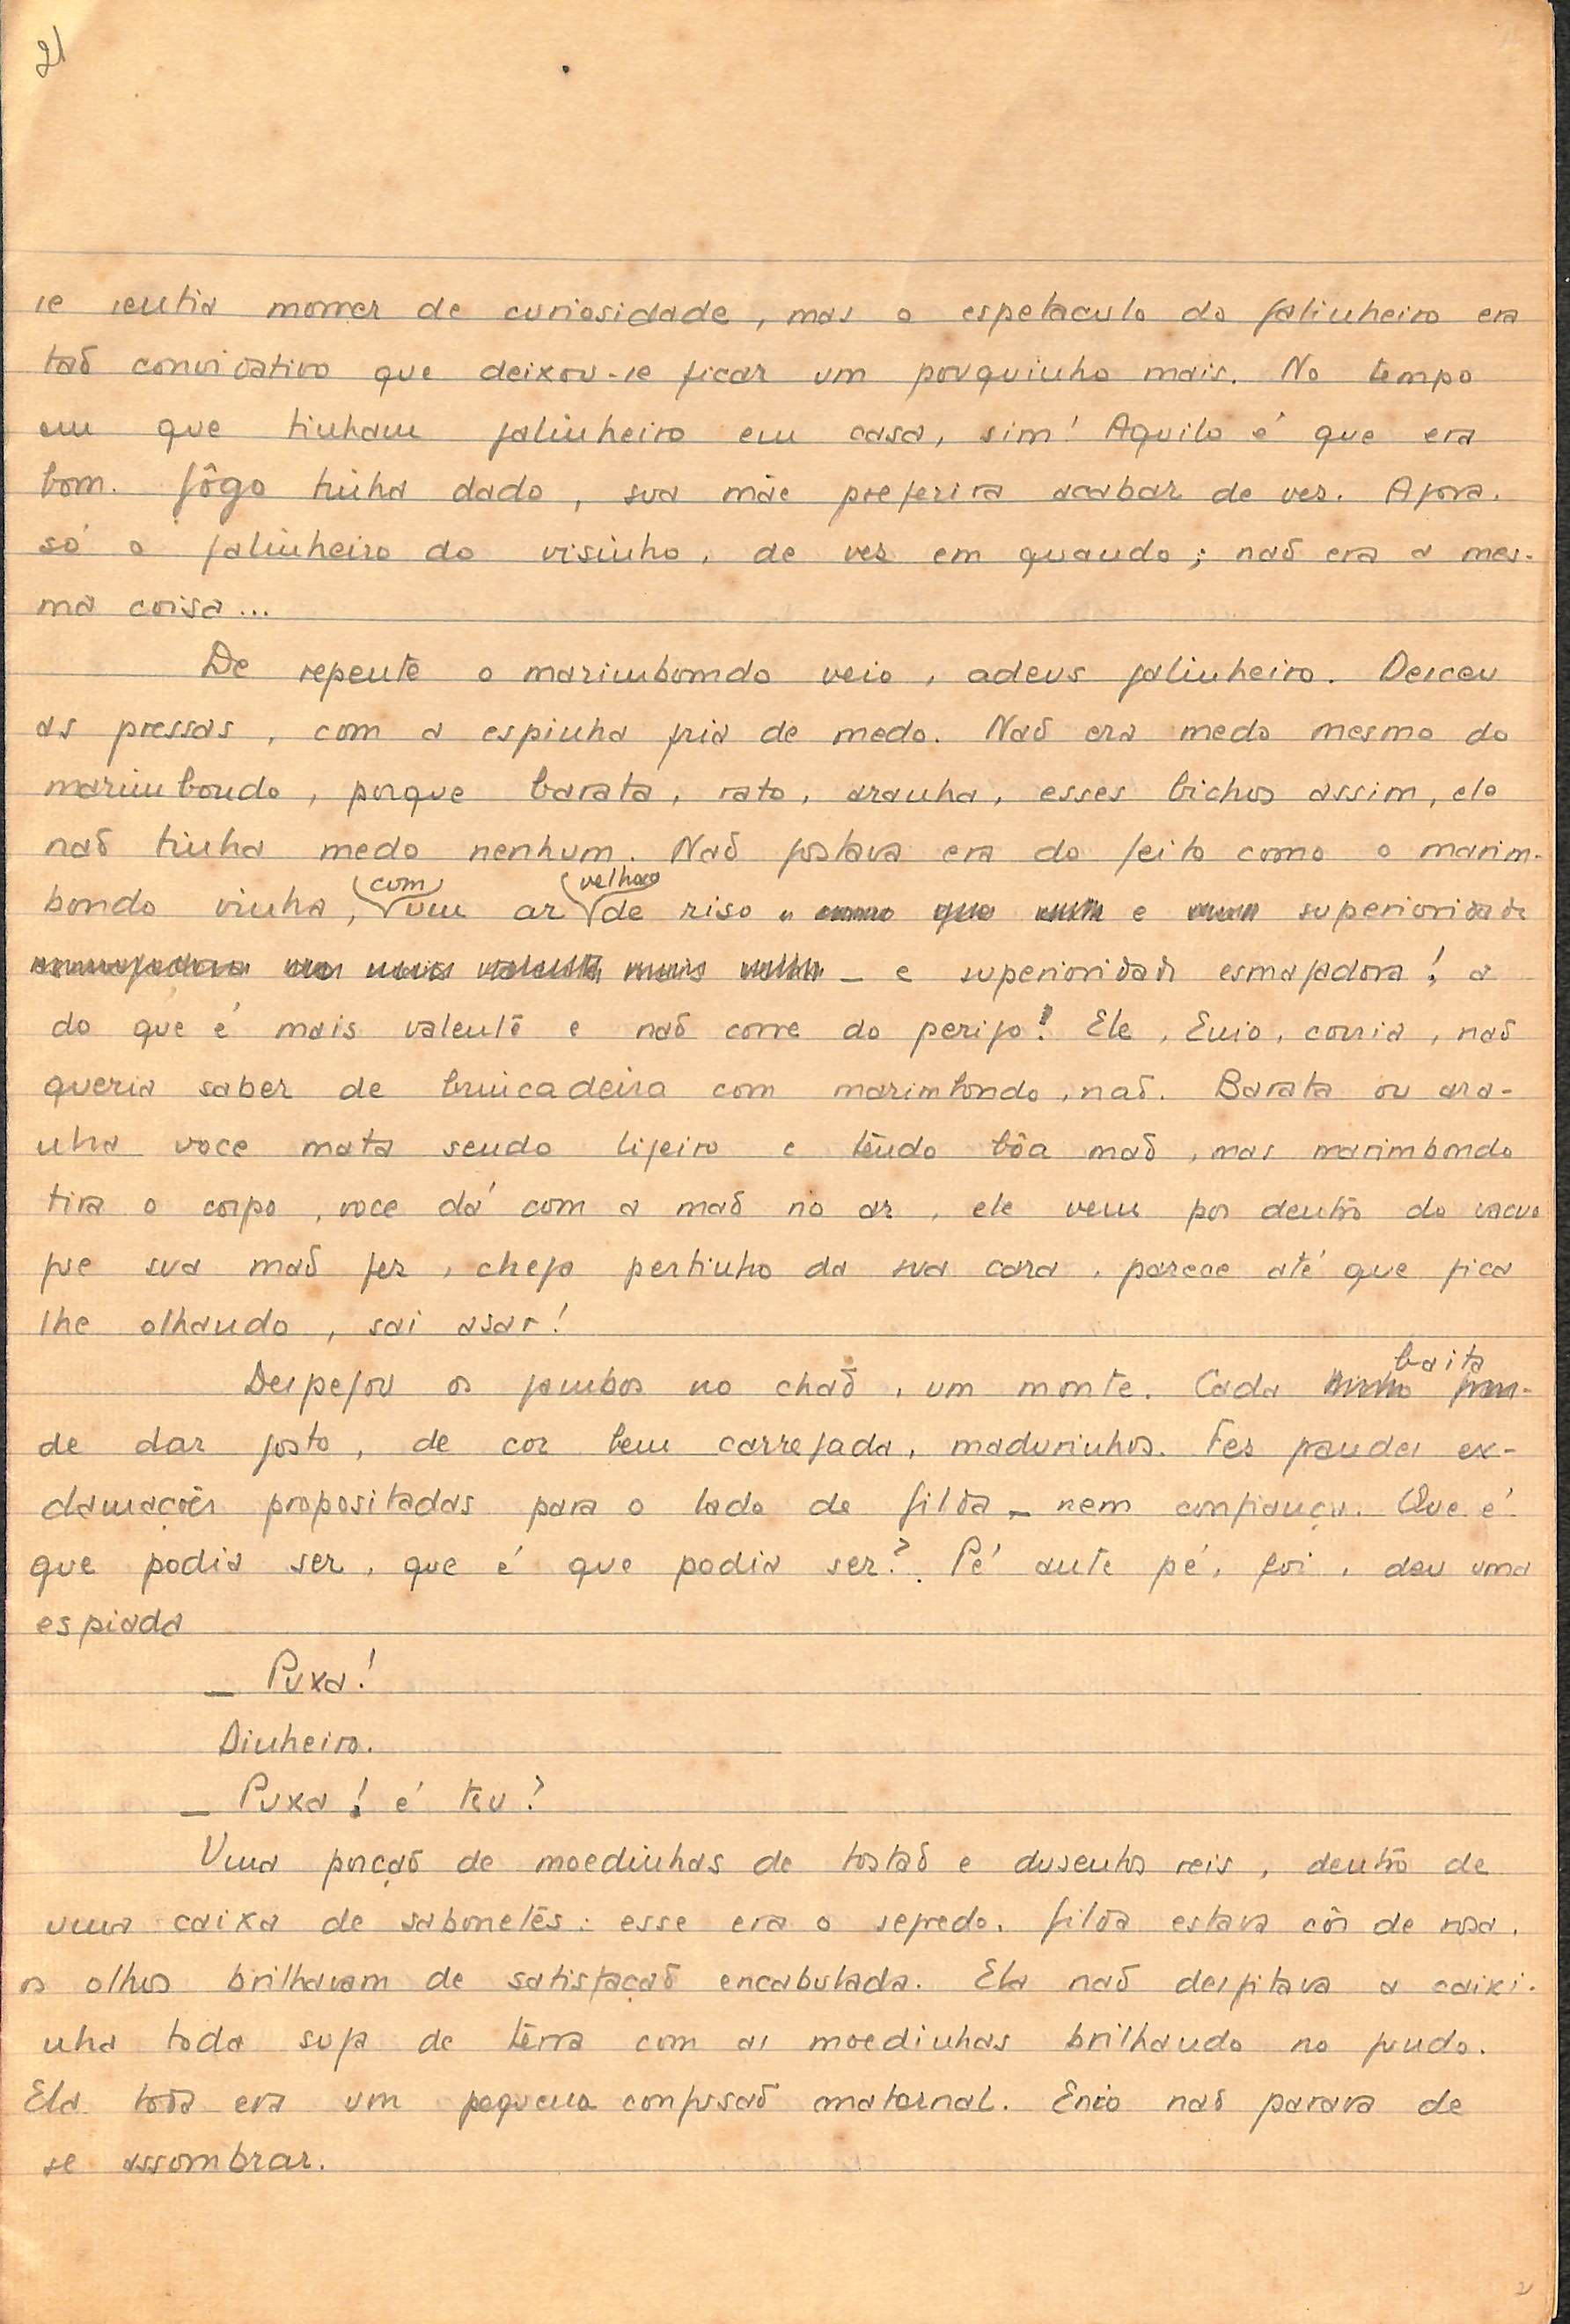 21
se sentia morrer de curiosidade, mas o espetaculo do galinheiro era
taõ convidativo que deixou-se ficar um pouquinho mais. No tempo
em que tinham galinheiro em casa, sim! Aquilo é que era
bom. Gôgo tinha dado, sua mãe preferira acabar de vez. Agora.
só o galinheiro do visinho, de vez em quando; naõ era a mes-
ma coisa...
De repente o marimbomdo veio, adeus galinheiro. Desceu
as pressas, com a espinha fria de medo. Naõ era medo mesmo do
marimbondo, porque barata, rato, aranha, esses bichos assim, ele
naõ tinha medo nenhum. Naõ gostava era do geito como o marim-
bondo vinha, com um ar velhaco de riso e superioridade
— e superioridade esmagadora! a
do que é mais valente e naõ corre do perigo! Ele, Enio, corria, naõ
queria saber de brincadeira com marimbondo, naõ. Barata ou ara-
nha voce mata sendo ligeiro e tendo bôa maõ, mas marimbondo
tira o corpo, voce dá com a maõ no ar, ele vem por dentro do vacuo
que sua maõ fez, chega pertinho da sua cara, parece até que fica
lhe olhando, sai asar!
Despejou os jambos no chaõ, um monte. Cada baita
de dar gosto, de cor bem carregada, madurinhos. Fez grandes ex-
clamações propositadas para o lado de Gilda — nem confiança. Que é
que podia ser, que é que podia ser? Pé ante pé, foi, deu uma
espiada
— Puxa!
Dinheiro.
— Puxa! é teu?
Uma porçaõ de moedinhas de tostaõ e dusentos reis, dentro de
uma caixa de sabonetes: esse era o segredo. Gilda estava côr de rosa,
os olhos brilhavam de satisfaçaõ encabulada. Ela naõ desfitava a caixi-
nha toda suja de terra com as moedinhas brilhando no fundo.
Ela toda era um pequena confusaõ maternal. Enio naõ parava de
se assombrar.